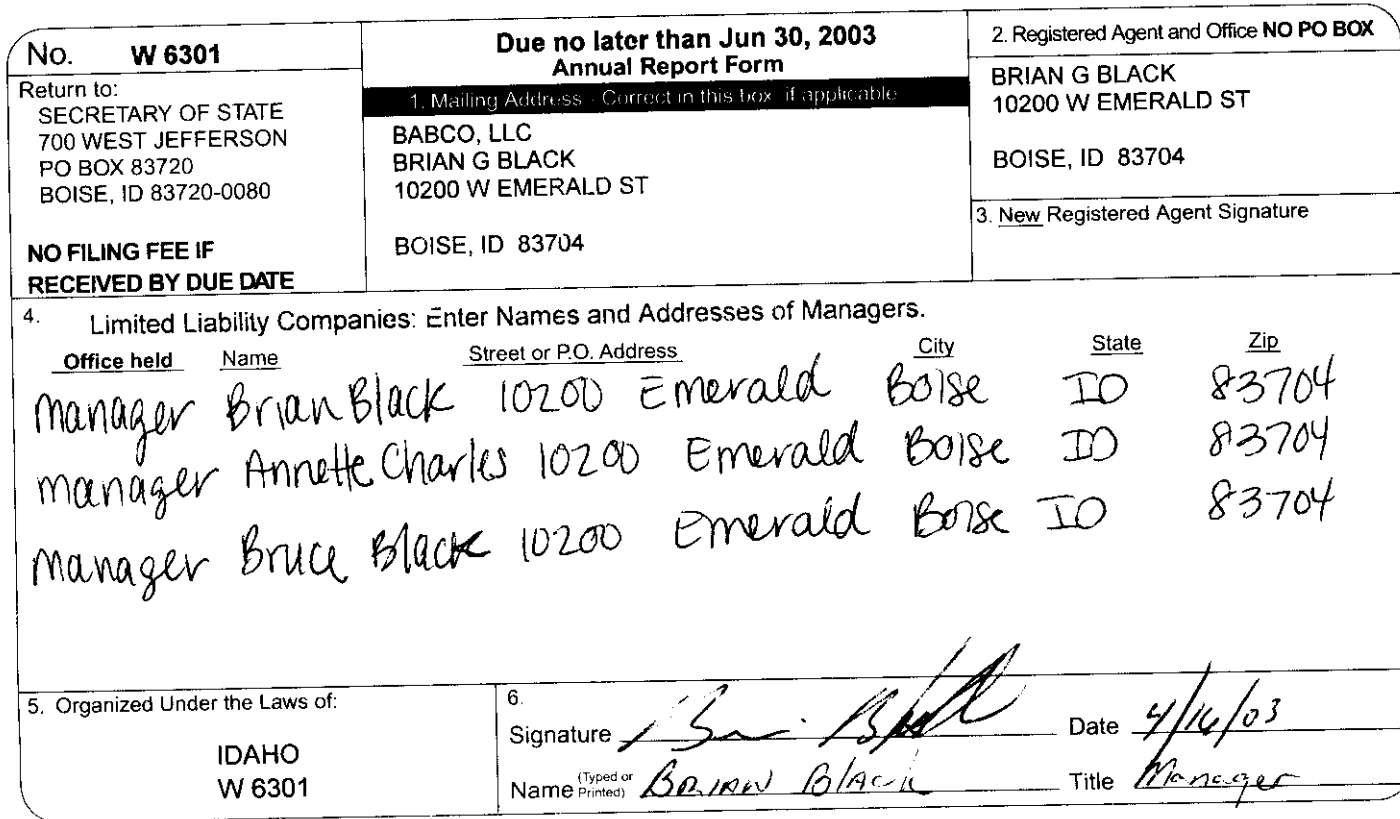 No. W 6301
Return to:
SECRETARY OF STATE
700 WEST JEFFERSON
PO BOX 83720
BOISE, ID 83720-0080
NO FILING FEE IF
RECEIVED BY DUE DATE
Due no later than Jun 30, 2003
Annual Report Form
1. Mailing Address - Correct in this box if applicable
BABCO, LLC
BRIAN G BLACK
10200 W EMERALD ST
BOISE, ID 83704
2. Registered Agent and Office NO PO BOX
BRIAN G BLACK
10200 W EMERALD ST
BOISE, ID 83704
3. New Registered Agent Signature
4. Limited Liability Companies: Enter Names and Addresses of Managers.
Office held Name Street or P.O. Address City State Zip
Manager Brian Black 10200 Emerald Boise ID 83704
Manager Annette Charles 10200 Emerald Boise ID 83704
Manager Bruce Black 10200 Emerald Boise ID 83704
5. Organized Under the Laws of:
IDAHO
W 6301
6.
Signature Date 4/16/03
Name (Typed or Printed) BRIAN BLACK Title Manager